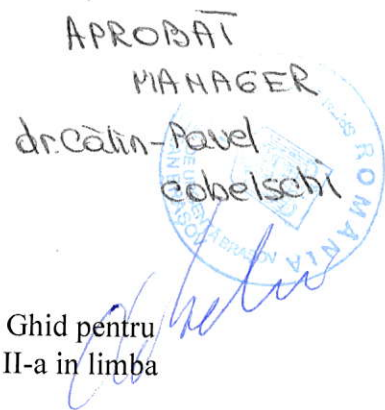 APROBAT
MANAGER
dr. Călin-Pavel
Cobelschi
ROMANIA
BRAȘOV
Ghid pentru
II-a in limba